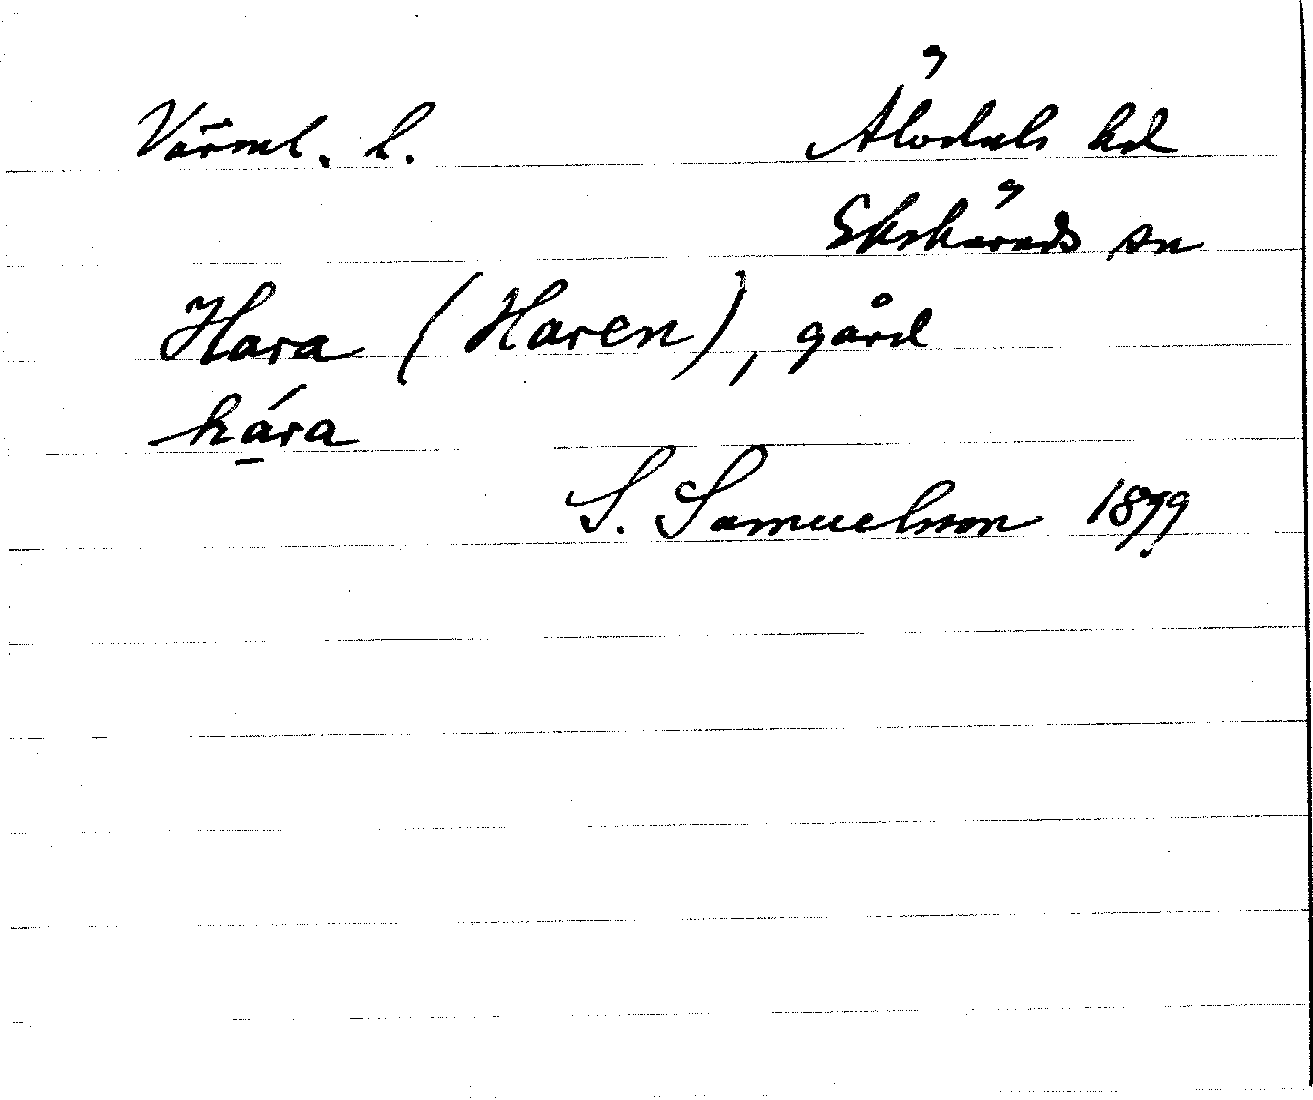 Värml. l. Älvdals hd
Ekshärads sn
Hara (Haren), gård
hára
S. Samuelsson 1899